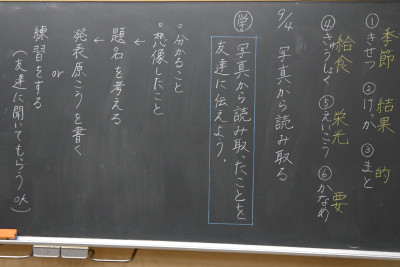 季節 結果 的
①きせつ ②けっか ③まと
給食 栄光 要
④きゅうしょく ⑤えいこう ⑥かなめ
9/4 写真から読み取る
学 写真から読み取ったことを
友達に伝えよう。
分かること
想像したこと
↓
題名を考える
↓
発表原こうを書く
or
練習をする
(友達に聞いてもらうOK)